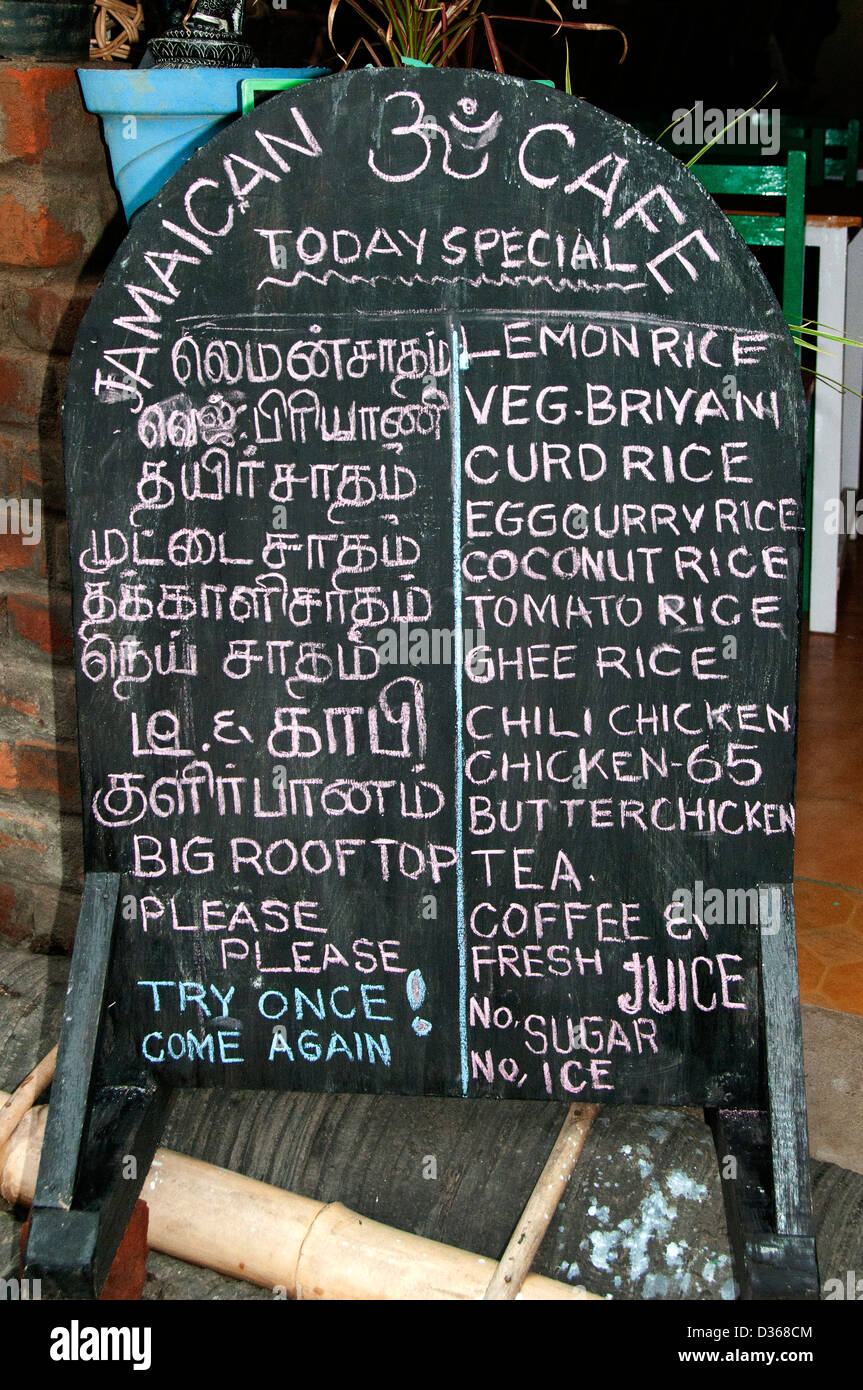 JAMAICAN ॐ CAFE
TODAY SPECIAL
லெமன்சாதம்
வெஜ். பிரியாணி
தயிர்சாதம்
முட்டை சாதம்
தக்காளிசாதம்
நெய் சாதம்
டீ. & காபி
குளிர்பானம்
BIG ROOF TOP
PLEASE
PLEASE
TRY ONCE !
COME AGAIN
LEMON RICE
VEG. BRIYANI
CURD RICE
EGG CURRY RICE
COCONUT RICE
TOMATO RICE
GHEE RICE
CHILI CHICKEN
CHICKEN-65
BUTTER CHICKEN
TEA.
COFFEE &
FRESH JUICE
NO, SUGAR
NO, ICE
alamy
alamy
Image ID: D368CM
www.alamy.com